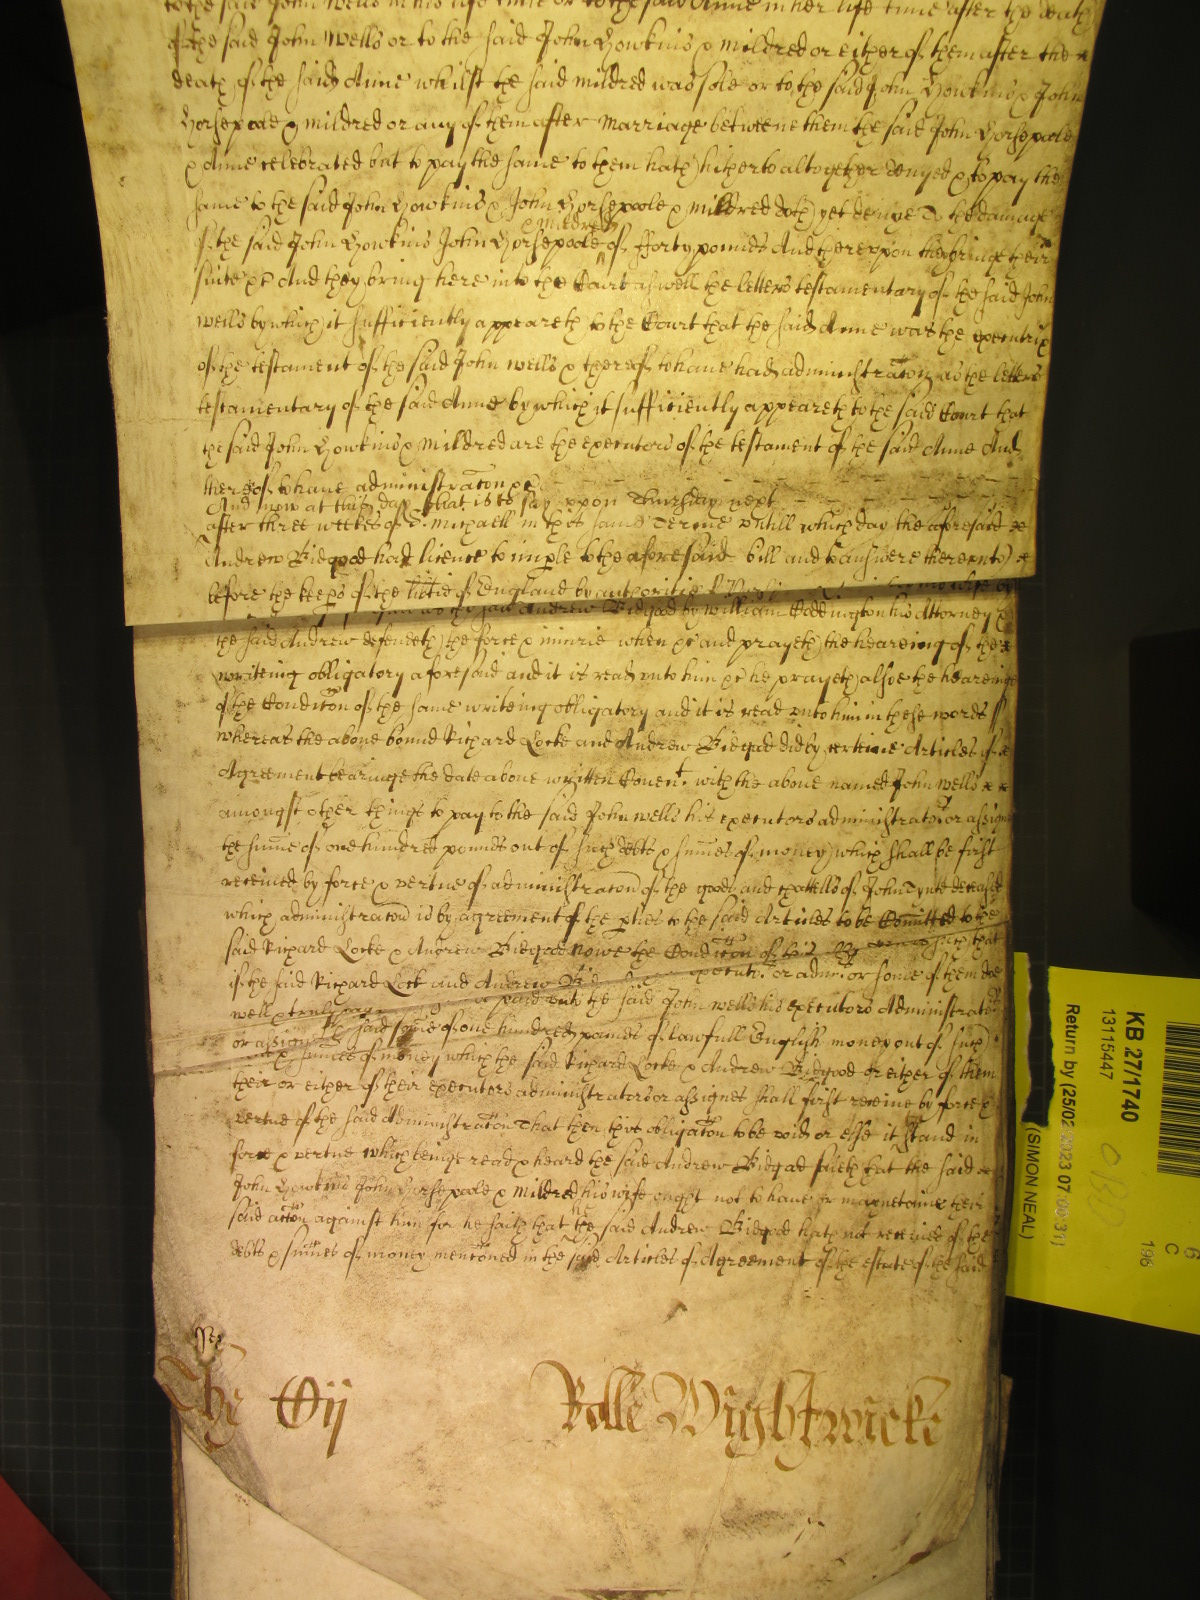 to the said John Wells in his life time or to the said Anne in her life time after the death
of the said John Wells or to the said John Howkins & Mildred or either of them after the
death of the said Anne whilst the said Mildred was sole or to the said John Howkins & John
Horsepoole & Mildred or any of them after Marriage betweene them the said John Horsepoole
& Anne celebrated but to pay the same to them hath hitherto altogether denyed & to pay the
same to the said John Howkins & John Horsepoole & Mildred doth yet denye To the damage
& Mildred
of the said John Howkins John Horsepoole of fforty pounds And thereupon they bringe their
suite &c And they bring here into the Court aswell the letters testamentary of the said John
Wells by which it sufficiently appeareth to the Court that the said Anne was the executrix
of the testament of the said John Wells & thereof to have had administracon as the letters
testamentary of the said Anne by which it sufficiently appeareth to the said Court that
the said John Howkins & Mildred are the executors of the testament of the said Anne And
thereof to have administracon &c
And now at this day that is to say upon Thursday next
after three weekes of St Michaell in this same Terme untill which day the aforesaid
Andrew Bidgood had licence to imple to the aforesaid bill and to answere thereunto
before the keeps of the libtie of England by authoritie of
said Andrew Bidgod by William Eddington his Attorney &
the said Andrew defendeth the force & iniurie when &c and prayeth the heareing of the
writeing obligatory aforesaid and it is read unto him &c he prayeth alsoe the heareinge
of the Condicon of the same writeing obligatory and it is read unto him in these words ss
whereas the above bound Richard Locke and Andrew Bidgod did by certeine Articles of
Agreement beareinge the date above written Covent with the above named John Wells
amongst other things to pay to the said John Wells his executors administrators or assignes
the sume of one hundred pounds out of such debts & sumes of money which shall be first
received by force & vertue of administracon of the goods and chattells of John Tynte deceased
which administracon is by agreement of the pties to the said Articles to be Comitted to the
said Richard Locke & Andrew Bidgod Nowe the Condicon of this such that
if the said Richard Lock and Andrew executs or admrs or some of them doe
well & truly pay paid unto the said John Wells his executors Administrators
or assignes the said some of one hundred pounds of lawfull English money out of such
& sumes of money which the said Richard Locke & Andrew Bidgood or either of them
their or either of their executors administrators or assignes shall first receive by force &
vertue of the said Administracon That then this obligacon to be void or else it stand in
force & vertue which beinge read & heard the said Andrew Bidgod saieth that the said
John Howkins John Horsepoole & Mildred his wife ought not to have or mayneteine their
said accon against him for he saith that the said Andrew Bidgod hath not received of the
debts & sumes of money menconed in the said Articles of Agreement of the estate of the said
Rolle Wightwicke
KB 27/1740
13115447
Return by (25/02/2023 07:00:31)
(SIMON NEAL)
6
C
196